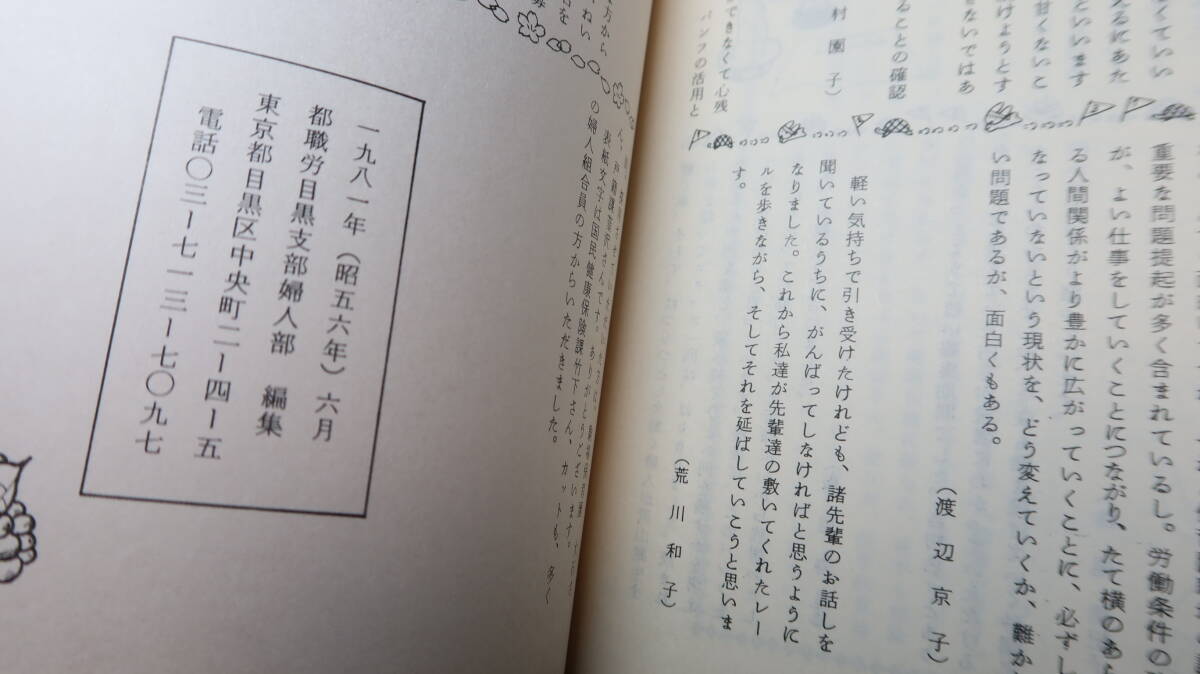 くていい
えるにあた
といいます
甘くないこ
けようとす
きないではあ
ることの確認
村園子）
できなくて心残
パンフの活用と
重要な問題提起が多く含まれているし。労働条件の
が、よい仕事をしていくことにつながり、たて横のあら
る人間関係がより豊かに広がっていくことに、必ずし
なっていないという現状を、どう変えていくか、難か
い問題であるが、面白くもある。
（渡辺京子）
軽い気持ちで引き受けたけれども、諸先輩のお話しを
聞いているうちに、がんばってしなければと思うように
なりました。これから私達が先輩達の敷いてくれたレー
ルを歩きながら、そしてそれを延ばしていこうと思いま
す。
（荒川和子）
方から
ねい
を
ありがとうございます。
表紙文字は国民健康保険課竹下さん、カットも、多く
の婦人組合員の方からいただきました。
一九八一年（昭五六年）六月
都職労目黒支部婦人部 編集
東京都目黒区中央町二ー四ー五
電話〇三ー七一三ー七〇九七